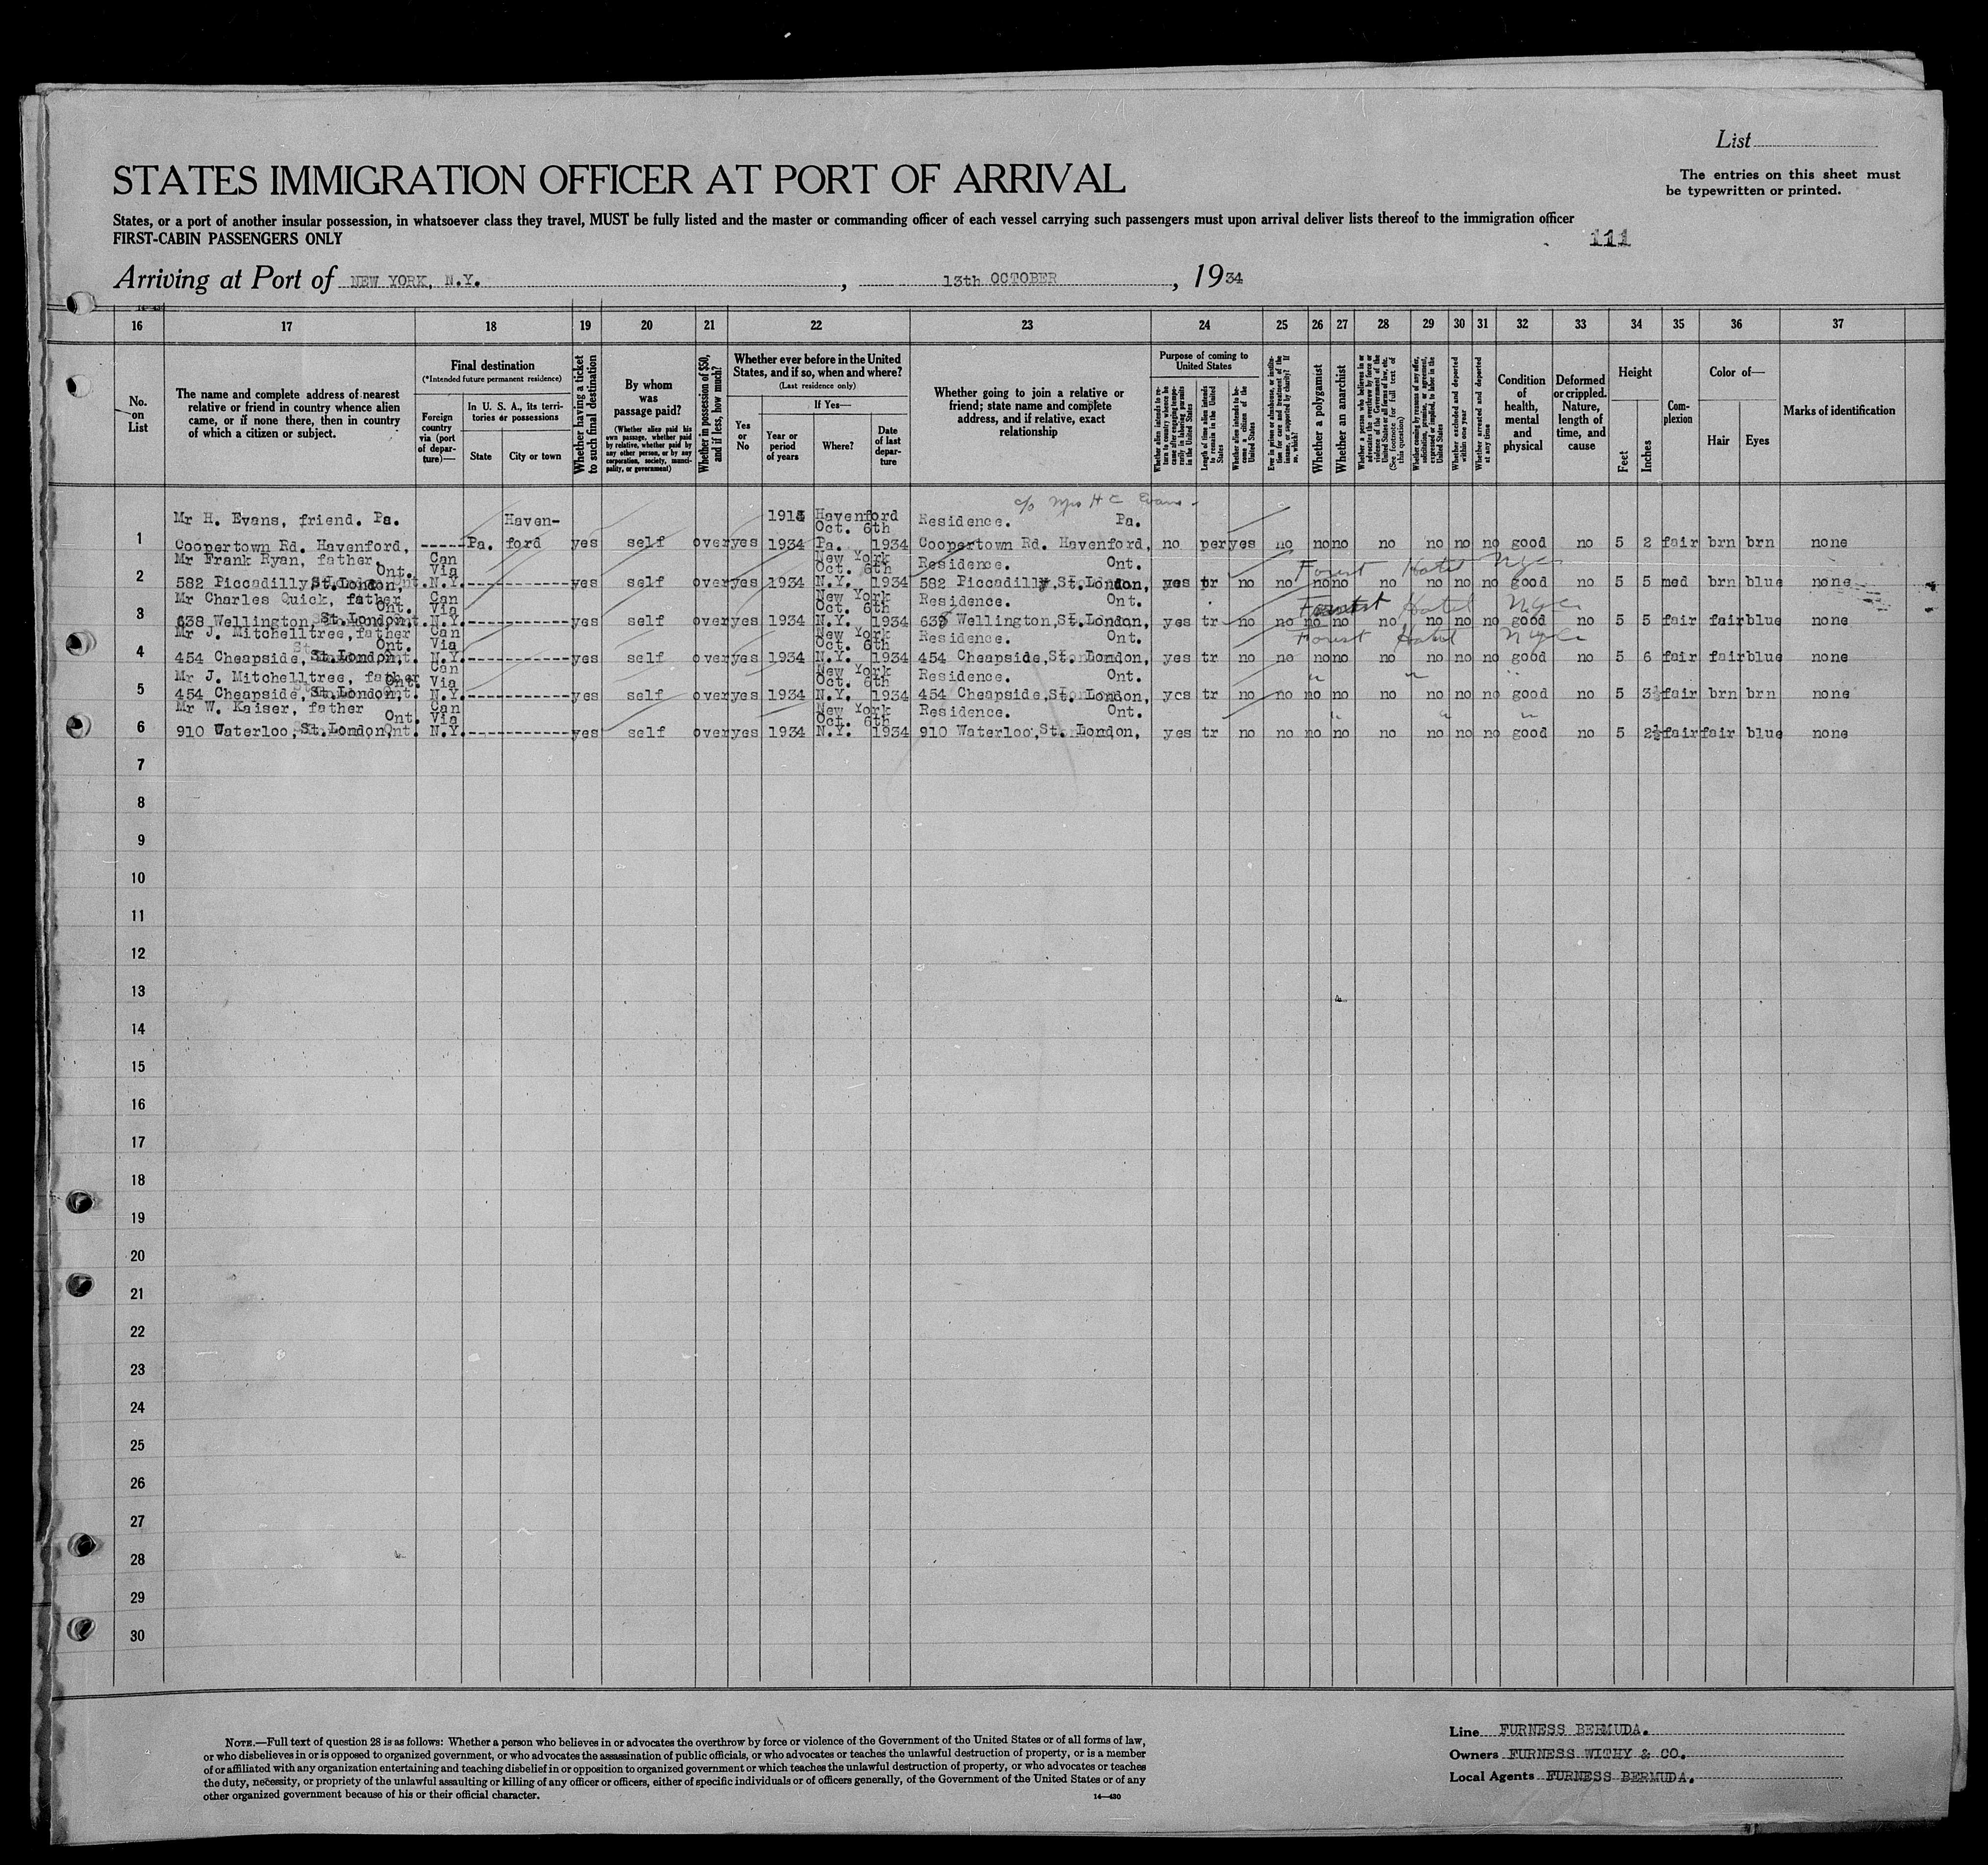 List
STATES IMMIGRATION OFFICER AT PORT OF ARRIVAL
The entries on this sheet must
be typewritten or printed.
States, or a port of another insular possession, in whatsoever class they travel, MUST be fully listed and the master or commanding officer of each vessel carrying such passengers must upon arrival deliver lists thereof to the immigration officer
FIRST-CABIN PASSENGERS ONLY
111
Arriving at Port of NEW YORK, N.Y., 13th OCTOBER, 1934
16 17 18 19 20 21 22 23 24 25 26 27 28 29 30 31 32 33 34 35 36 37
No. on List
The name and complete address of nearest relative or friend in country whence alien came, or if none there, then in country of which a citizen or subject.
Final destination
(*Intended future permanent residence)
Foreign country via (port of departure)—
In U. S. A., its territories or possessions
State
City or town
Whether having a ticket to such final destination
By whom was passage paid?
(Whether alien paid his own passage, whether paid by relative, whether paid by any other person, or by any corporation, society, municipality, or government)
Whether in possession of $50, and if less, how much?
Whether ever before in the United States, and if so, when and where?
(Last residence only)
Yes or No
If Yes—
Year or period of years
Where?
Date of last departure
Whether going to join a relative or friend; state name and complete address, and if relative, exact relationship
Purpose of coming to United States
Whether alien intends to return to country whence he came after engaging temporarily in laboring pursuits in the United States
Length of time alien intends to remain in the United States
Whether alien intends to become a citizen of the United States
Ever in prison or almshouse, or institution for care and treatment of the insane, or supported by charity? If so, which?
Whether a polygamist
Whether an anarchist
Whether a person who believes in or advocates the overthrow by force or violence of the Government of the United States or all forms of law, etc. (See footnote for full text of this question)
Whether coming by reason of any offer, solicitation, promise, or agreement, expressed or implied, to labor in the United States
Whether excluded and deported within one year
Whether arrested and deported at any time
Condition of health, mental and physical
Deformed or crippled. Nature, length of time, and cause
Height
Feet
Inches
Complexion
Color of—
Hair
Eyes
Marks of identification
c/o Mrs H C Evans
Mr H. Evans, friend. Pa. Haven- Havenford Oct. 6th Residence. Pa.
1 Coopertown Rd. Havenford, ----- Pa. ford yes self over yes 1934 Pa. 1934 Coopertown Rd. Havenford, no per yes no no no no no no no good no 5 2 fair brn brn none
Mr Frank Ryan, father, Ont. Can Via New York Oct. 6th Residence. Ont. Forest Hotel NYC
2 582 Piccadilly St. London, N.Y. yes self over yes 1934 N.Y. 1934 582 Piccadilly, St. London, yes tr no no no no no no no no good no 5 5 med brn blue none
Mr Charles Quick, father Ont. Can Via New York Oct. 6th Residence. Ont. Forest Hotel NYC
3 638 Wellington, St. London N.Y. yes self over yes 1934 N.Y. 1934 638 Wellington, St. London, yes tr no no no no no no no no good no 5 5 fair fair blue none
Mr J. Mitchelltree, father Ont. Can Via New York Oct. 6th Residence. Ont. Forest Hotel NYC
4 454 Cheapside, St. London, N.Y. yes self over yes 1934 N.Y. 1934 454 Cheapside, St. London, yes tr no no no no no no no no good no 5 6 fair fair blue none
Mr J. Mitchelltree, father Ont. Can Via New York Oct. 6th Residence. Ont. " " "
5 454 Cheapside, St. London N.Y. yes self over yes 1934 N.Y. 1934 454 Cheapside, St. London, yes tr no no no no no no no no good no 5 3½ fair brn brn none
Mr W. Kaiser, father Ont. Can Via New York Oct. 6th Residence. Ont. " " "
6 910 Waterloo, St. London N.Y. yes self over yes 1934 N.Y. 1934 910 Waterloo, St. London, yes tr no no no no no no no no good no 5 2½ fair fair blue none
7
8
9
10
11
12
13
14
15
16
17
18
19
20
21
22
23
24
25
26
27
28
29
30
NOTE.—Full text of question 28 is as follows: Whether a person who believes in or advocates the overthrow by force or violence of the Government of the United States or of all forms of law,
or who disbelieves in or is opposed to organized government, or who advocates the assassination of public officials, or who advocates or teaches the unlawful destruction of property, or is a member
of or affiliated with any organization entertaining and teaching disbelief in or opposition to organized government or which teaches the unlawful destruction of property, or who advocates or teaches
the duty, necessity, or propriety of the unlawful assaulting or killing of any officer or officers, either of specific individuals or of officers generally, of the Government of the United States or of any
other organized government because of his or their official character.
14—430
Line FURNESS BERMUDA.
Owners FURNESS WITHY & CO.
Local Agents FURNESS BERMUDA.